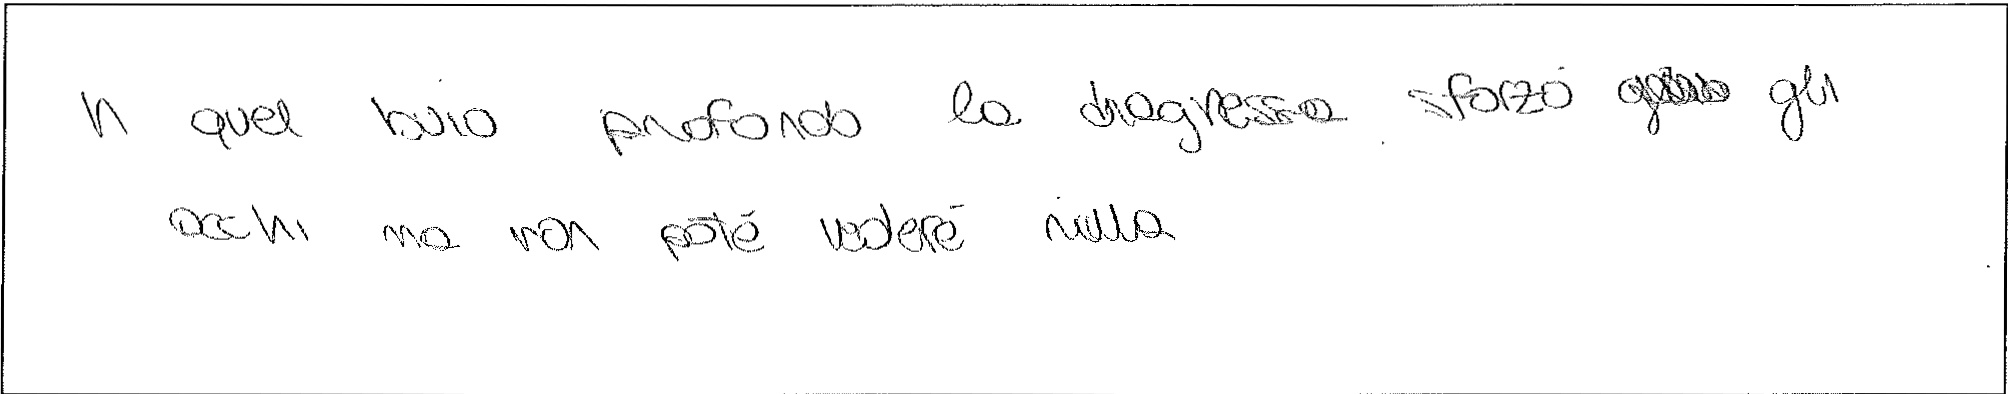 In quel buio profondo la dragressa sforzò gli
occhi ma non poté vedere nulla